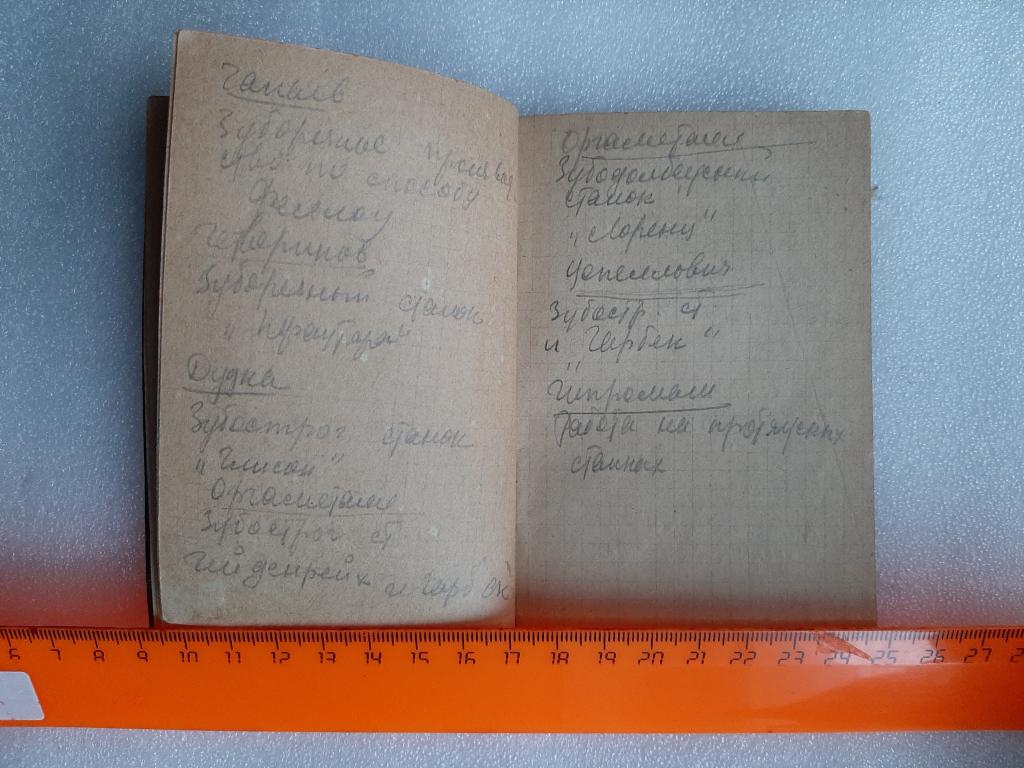 Чапаев
Зуборезные производ
ство по способу
Феллоу
Четвериков
Зуборезный станок
„Пфаутера"
Дудка
Зубострог. станок
„Глисон"
Оргаметалл
Зубострог ст
Гейденрейх и Гарбек
Оргаметалл
Зубодолбежный
станок
„Лоренц"
Зубостр. ст
„Гарбек"
Гипромаш
Работа на протяжных
станках
6 7 8 9 10 11 12 13 14 15 16 17 18 19 20 21 22 23 24 25 26 27